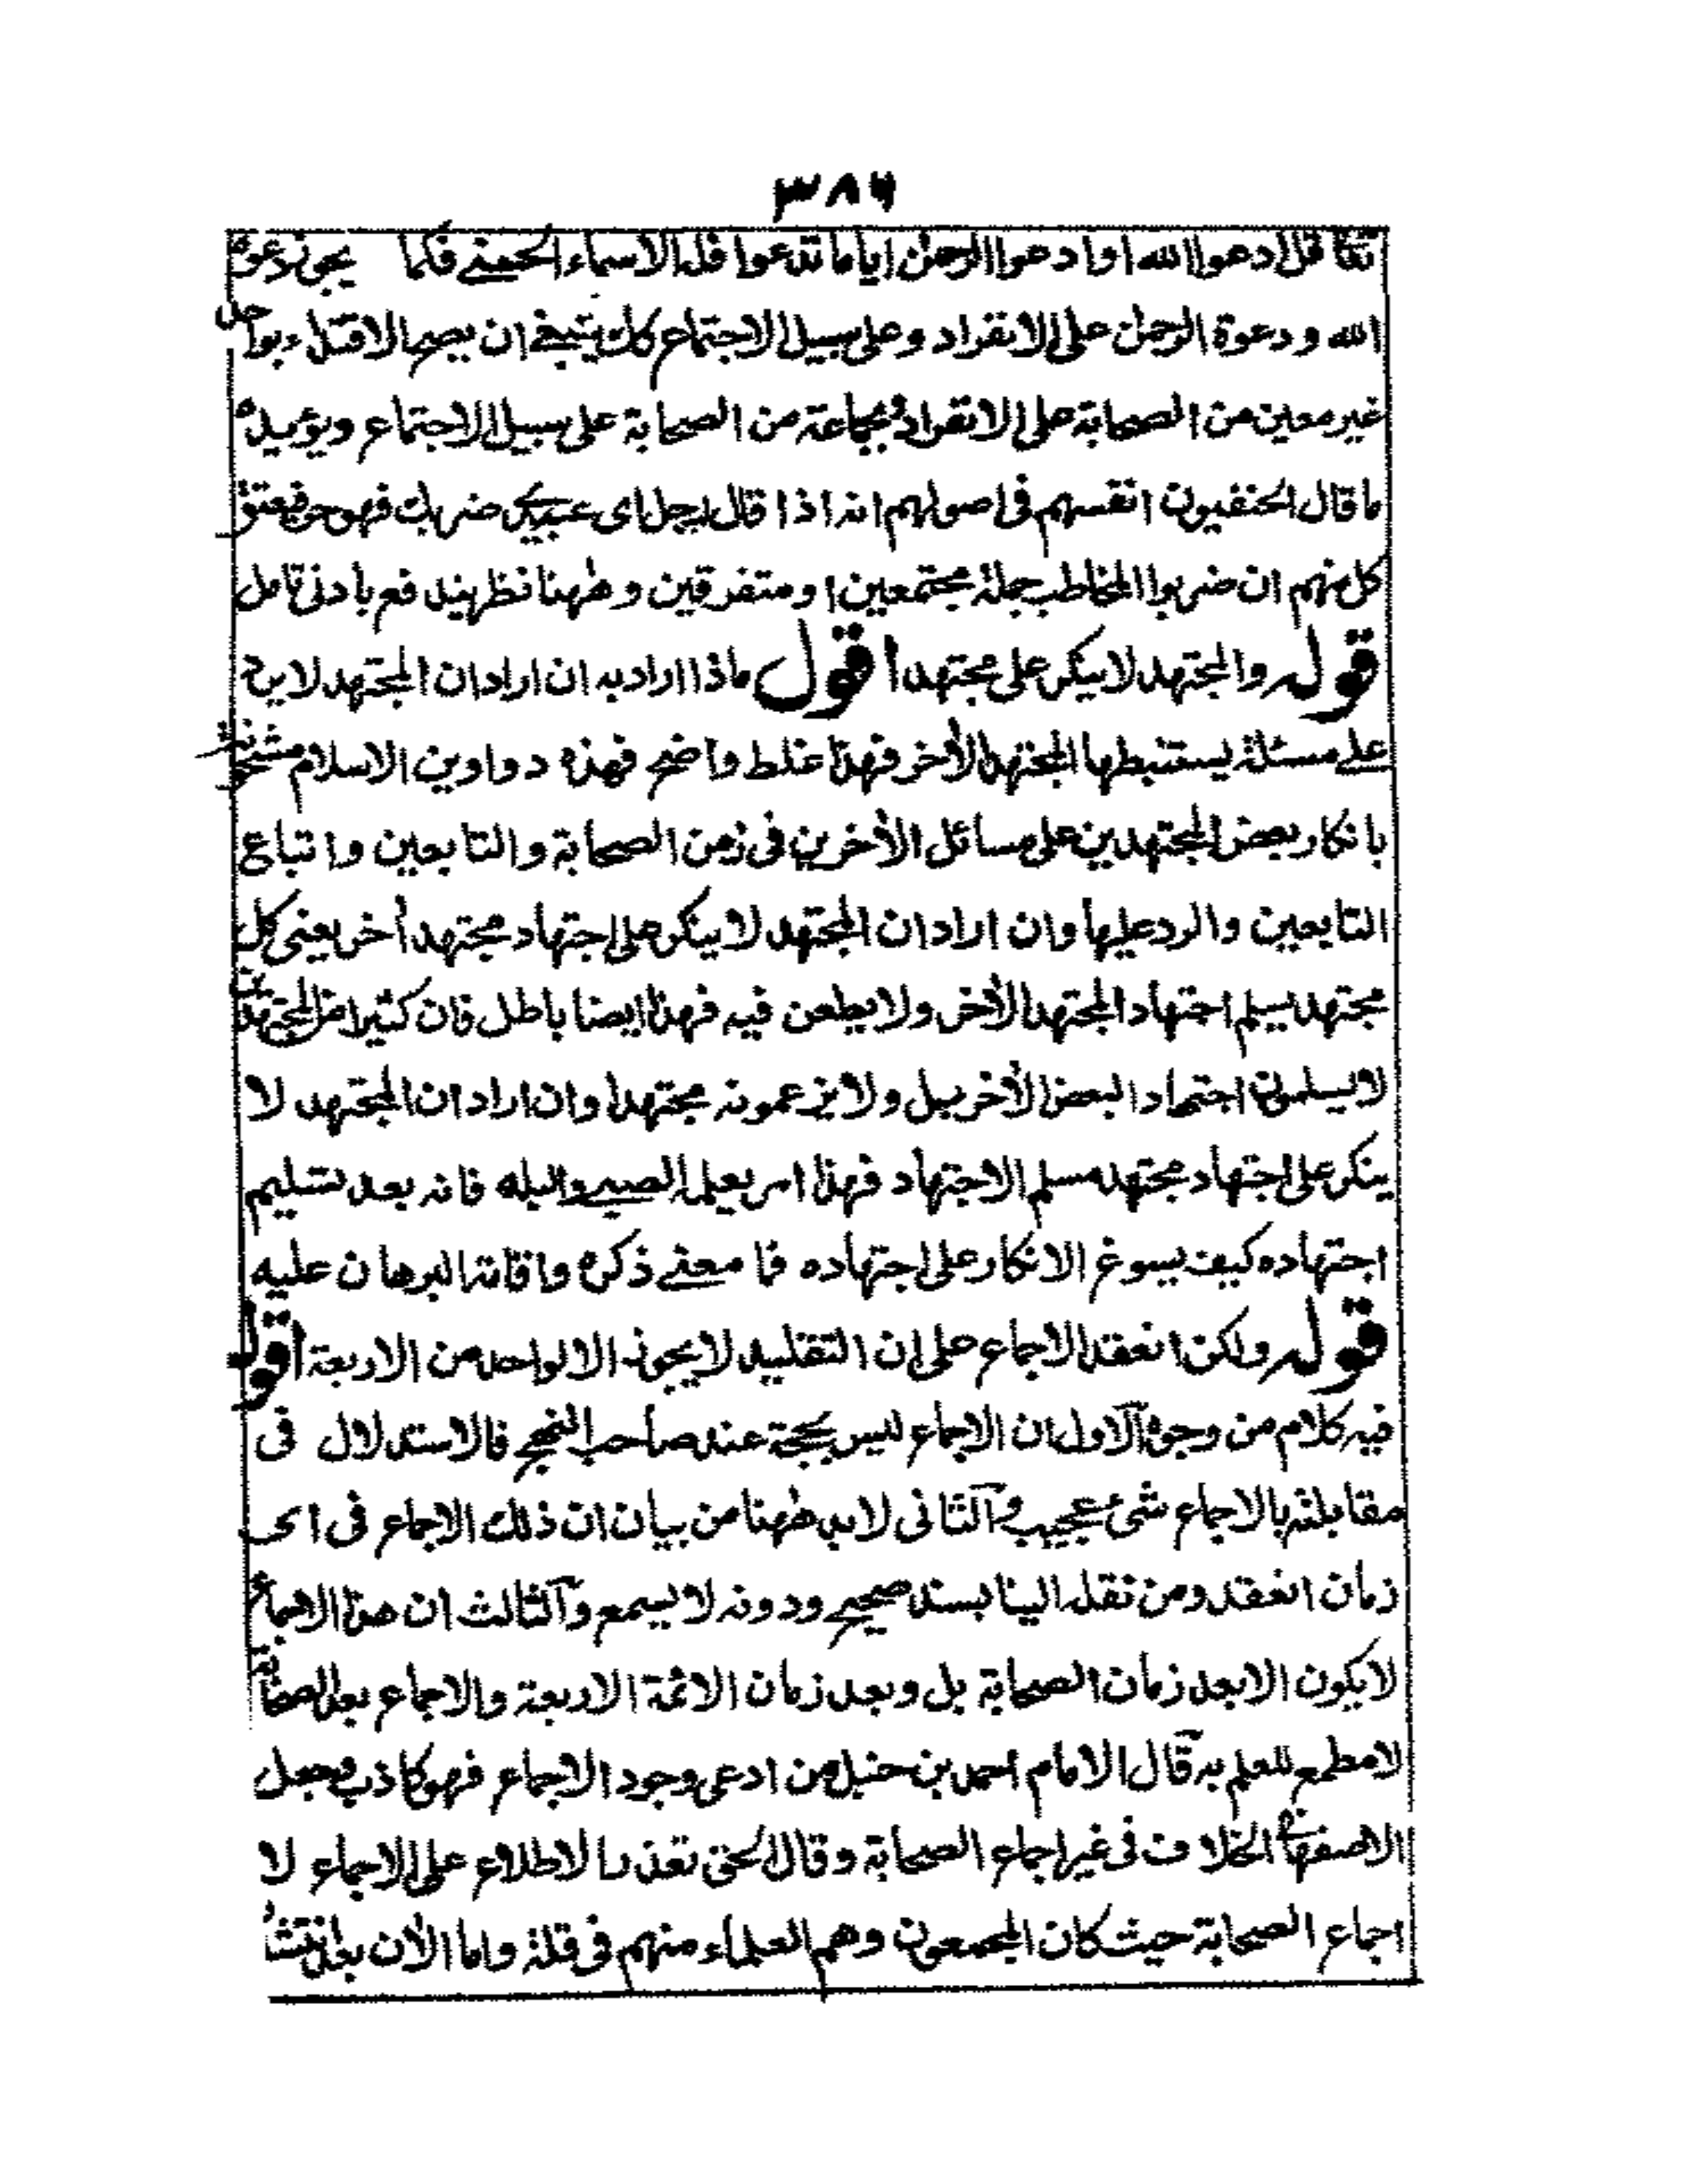 ٣٨٦
تعا قل ادعوا الله او ادعوا الرحمن ايا ما تدعوا فله الاسماء الحسنى فكما يجوز دعوة
الله ودعوة الرحمن على الانفراد وعلى سبيل الاجتماع كك ينبغي ان يصح الاقتداء بواحد
غير معين من الصحابة على الانفراد وبجماعة من الصحابة على سبيل الاجتماع ويؤيده
ما قال الحنفيون انفسهم فى اصولهم انه اذا قال رجل اى عبيدى ضربك فهو حر فيعتق
كل منهم ان ضربوا المخاطب جملة مجتمعين او متفرقين وههنا نظر يندفع بادنى تامل
قوله والمجتهد لا ينكر على مجتهد اقول ماذا اراد به ان اراد ان المجتهد لا يرد
على مسئلة يستنبطها المجتهد الأخر فهذا غلط واضح فهذه دواوين الاسلام مشحونة
بانكار بعض المجتهدين على مسائل الأخرين فى زمن الصحابة والتابعين واتباع
التابعين والرد عليها وان اراد ان المجتهد لا ينكر على اجتهاد مجتهد أخر يعنى كل
مجتهد يسلم اجتهاد المجتهد الأخر ولا يطعن فيه فهذا ايضا باطل فان كثيرا من المجتهدين
لا يسلمون اجتهاد البعض الأخر بل ولا يزعمونه مجتهدا وان اراد ان المجتهد لا
ينكر على اجتهاد مجتهد مسلم الاجتهاد فهذا امر يعلمه الصبى والبله فانه بعد تسليم
اجتهاده كيف يسوغ الانكار على اجتهاده فما معنى ذكره واقامة البرهان عليه
قوله ولكن انعقد الاجماع على ان التقليد لا يجوز الا لواحد من الاربعة اقول
فيه كلام من وجوه آلاول ان الاجماع ليس بحجة عند صاحب النهج فالاستدلال فى
مقابلته بالاجماع شئ عجيب وآلثانى لا بد ههنا من بيان ان ذلك الاجماع فى اى
زمان انعقد ومن نقله الينا بسند صحيح ودونه لا يسمع وآلثالث ان هذا الاجماع
لا يكون الا بعد زمان الصحابة بل وبعد زمان الائمة الاربعة والاجماع بعد الصحابة
لا مطمع للعلم به قال الامام احمد بن حنبل من ادعى وجود الاجماع فهو كاذب وجعل
الاصفهانى الخلاف فى غير اجماع الصحابة وقال الحق تعذر الاطلاع على الاجماع لا
اجماع الصحابة حيث كان المجمعون وهم العلماء منهم فى قلة واما الأن بعد انتشا